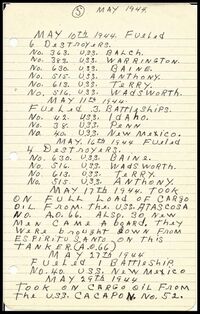 5 MAY 1944.
MAY 10TH 1944. FUELED
6 DESTROYERS.
NO. 363. U.S.S. BALCH.
NO. 383. U.S.S. WARRINGTON.
NO. 630. U.S.S. BAINE.
NO. 515. U.S.S. ANTHONY.
NO. 513. U.S.S. TERRY.
NO. 516. U.S.S. WADSWORTH.
MAY 11TH 1944.
FUELED .3. BATTLESHIPS.
NO. 42. U.S.S. IDAHO.
NO. 38. U.S.S. PENN
NO. 40. U.S.S. NEW MEXICO.
MAY. 16TH 1944 FUELED
4 DESTROYERS.
NO. 630. U.S.S. BAINE.
NO. 516. U.S.S. WADSWORTH.
NO. 513. U.S.S. TERRY.
NO. 515. U.S.S. ANTHONY.
MAY 17TH 1944. TOOK
ON FULL LOAD OF CARGO
OIL FROM THE U.S.S. ATASCOSA
NO. A.O. 66. ALSO. 30 NEW
MEN CAME A BOARD. THEY
WERE BROUGHT DOWN FROM
ESPIRITU SANTO ON THIS
TANKER (A.O. 66)
MAY 27TH 1944
FUELED 1 BATTLESHIP
NO. 40. U.S.S. NEW MEXICO
MAY 29TH 1944
TOOK ON CARGO OIL FROM
THE U.S.S. CACAPON NO. 52.